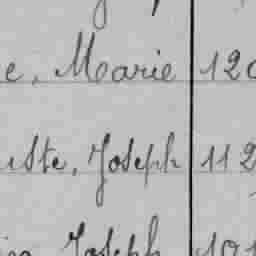 e, Marie 120
uste, Joseph 112
Joseph 101